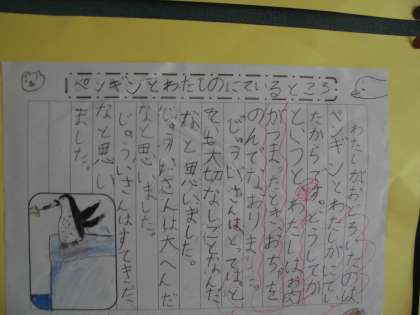 ペンギンとわたしのにているところ
わたしがおどろいたのは
ペンギンとわたしがにてい
たからです。どうしてか
というとわたしはお肉
がつまったとき、おちゃを
のんでなおります。
じゅういさんは、とてもと
ても大切なしごとなんだ
なと思いました。
じゅういさんは大へんだ
なと思いました。
じゅういさんはすてきだ
なと思い
ました。